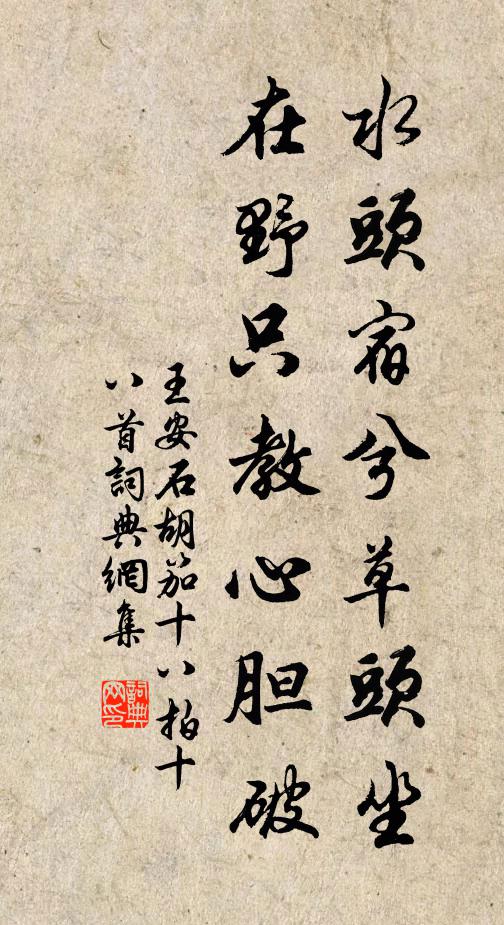 水頭宿兮草頭坐
在野只教心胆破
王安石胡笳十八拍十
八首詞典網集
詞典网印